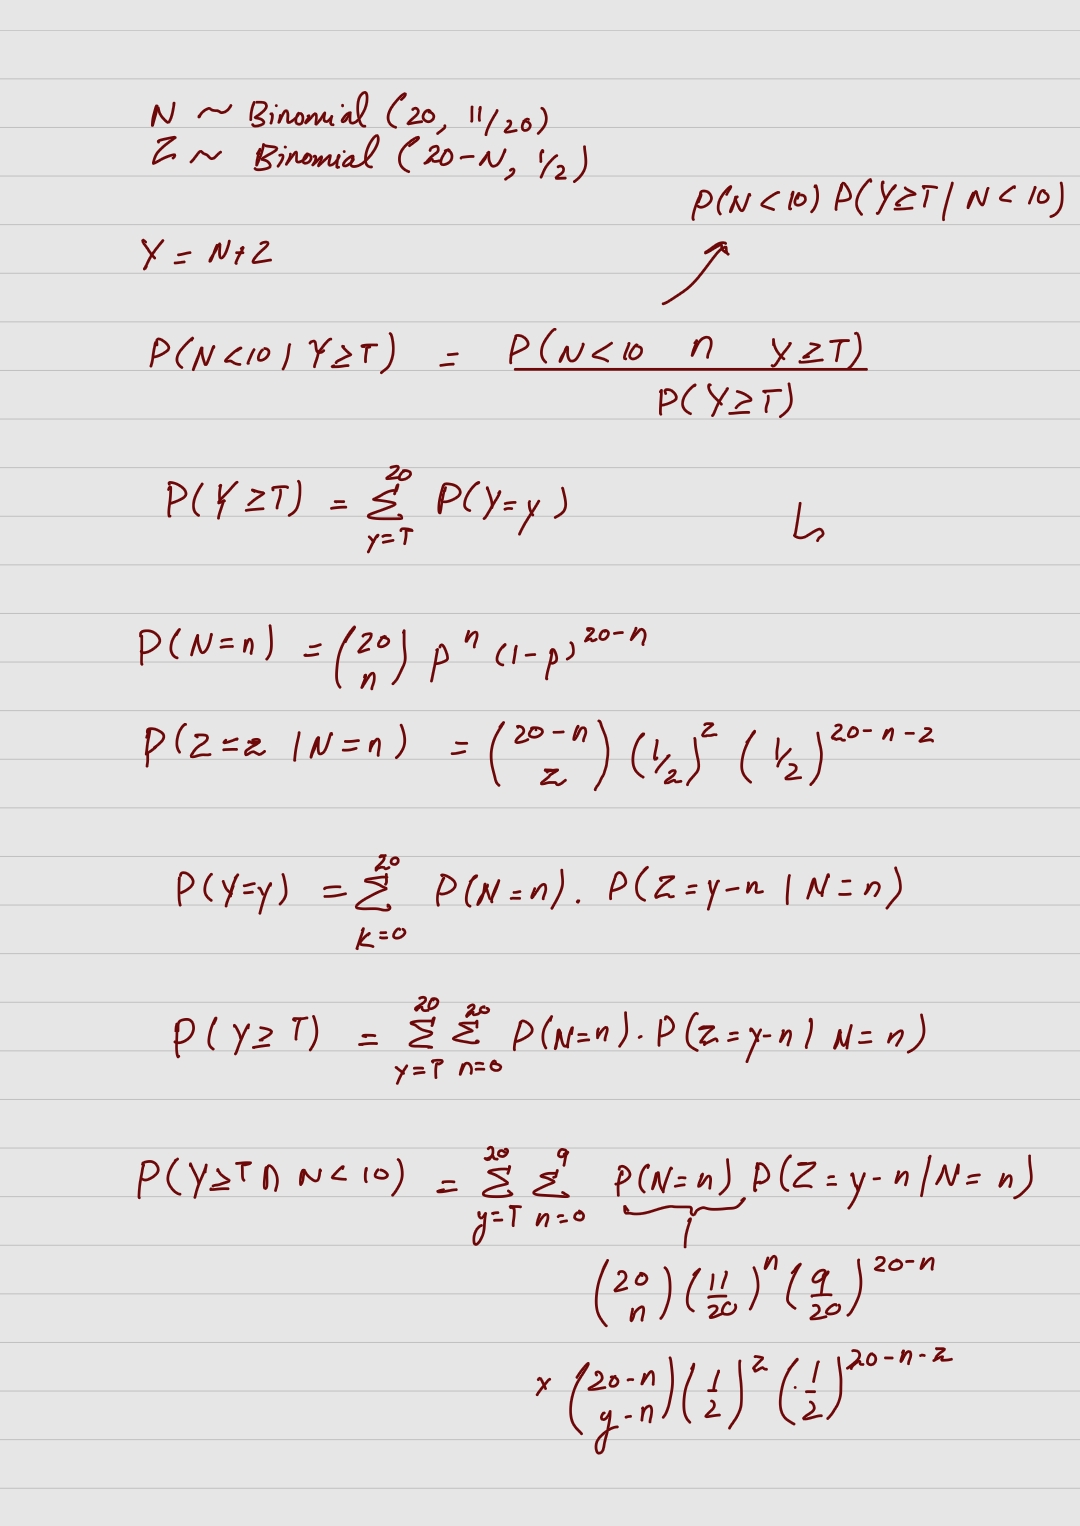 N ~ Binomial (20, 11/20)
Z ~ Binomial (20-N, 1/2)
P(N < 10) P(Y≥T | N < 10)
Y = N+Z
P(N < 10 | Y ≥ T) = P(N < 10 ∩ Y ≥ T)
P(Y ≥ T)
P(Y ≥ T) = Σ_{y=T}^{20} P(Y=y)
P(N=n) = (20 n) p^n (1-p)^{20-n}
P(Z=z | N=n) = (20-n z) (1/2)^z (1/2)^{20-n-z}
P(Y=y) = Σ_{k=0}^{20} P(N=n). P(Z=y-n | N=n)
P(Y ≥ T) = Σ_{y=T}^{20} Σ_{n=0}^{20} P(N=n). P(Z=y-n | N=n)
P(Y≥T ∩ N < 10) = Σ_{y=T}^{20} Σ_{n=0}^{9} P(N=n) P(Z=y-n | N=n)
(20 n) (11/20)^n (9/20)^{20-n}
x (20-n y-n) (1/2)^z (1/2)^{20-n-z}